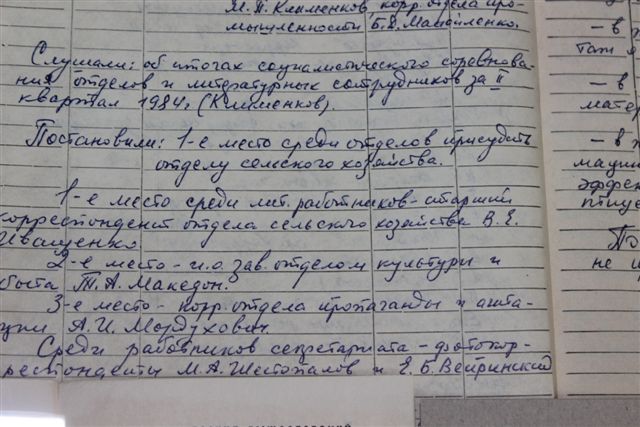 М.П. Клименков, корр. отдела про-
мышленности Б.Д. Манойленко.
Слушали: об итогах социалистического соревнова-
ния отделов и литературных сотрудников за II
квартал 1984г (Клименков).
Постановили: 1-е место среди отделов присудить
отделу сельского хозяйства.
1-е место среди лит. работников - старший
корреспондент отдела сельского хозяйства В.Е.
Иващенко
2-е место - и.о. зав. отделом культуры и
быта Т.А. Македон.
3-е место - корр. отдела пропаганды и агита-
ции А.И. Мордухович.
Среди работников секретариата - фотокор-
респонденты М.А. Шестопалов и Е.Б. Вейринский
- в х
таж я
- в
матер
- в х
мации
эффек
птице
По
не и